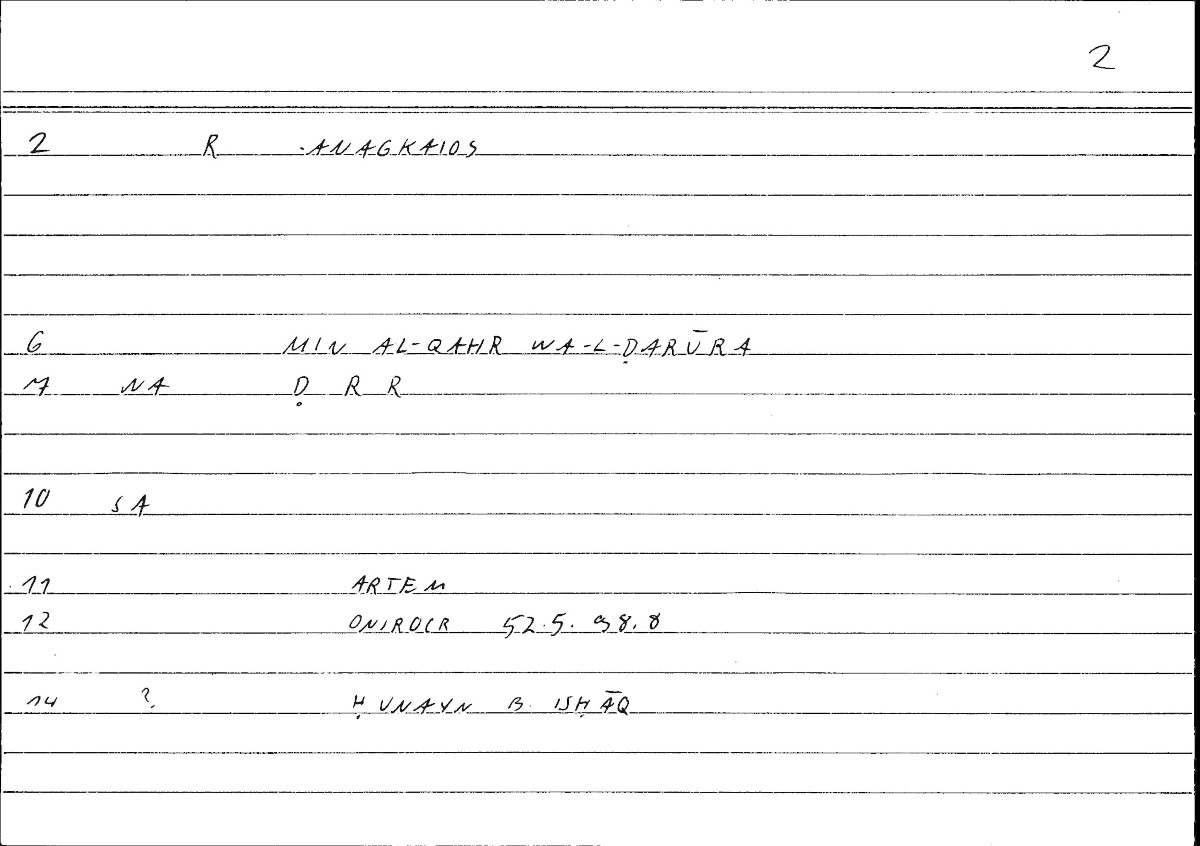 2
2 R ·ANAGKAIOS
6 MIN AL-QAHR WA-L-ḌARŪRA
7 NA Ḍ R R
10 SA
11 ARTEM
12 ONIROCR 52.5. 98.8
14 ? ḤUNAYN B. ISḤĀQ